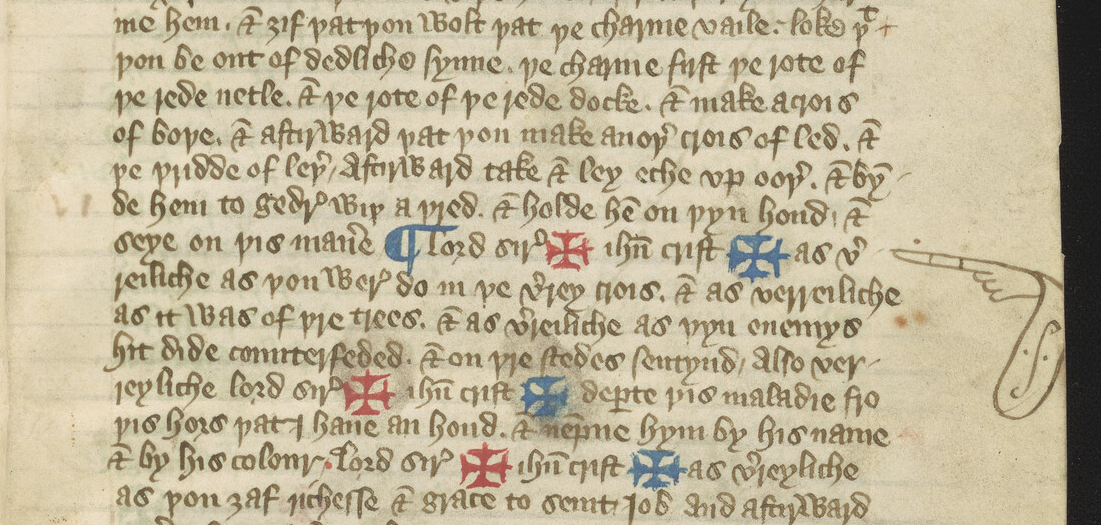 me hem . & ȝif þat þou wolt þat þe charme vaile : loke þᵗ
þou be out of dedliche synne . þe charme furst þe rote of
þe rede netle . & þe rote of þe rede docke . & make a crois
of boþe . & aftirward þat þou make anoþ̉ crois of led . &
þe þridde of leþ̉ / aftirward take & ley eche vp ooþ̉ . & byn̄
de hem to gedr̉ wiþ a þred . & holde hē on þyn hond / &
seye on þis man̉e ¶ lord sir̉ ✠ ihū crist ✠ as v̉
reiliche as þou wer̉ do in þe v̉rey crois . & as verreiliche
as it was of þre trees . & as v̉reiliche as þyn enemys
hit dide counterfeded . & on þre stedes / also ver
reyliche lord sir̉ ✠ ihū crist ✠ deꝑte þis maladie fro
þis hors þat I haue an hond . & nēpne hym by his name
& by his colour . lord sir̉ ✠ ihū crist ✠ as v̉reyliche
as þou ȝaf richesse & grace to seint Job and aftirward